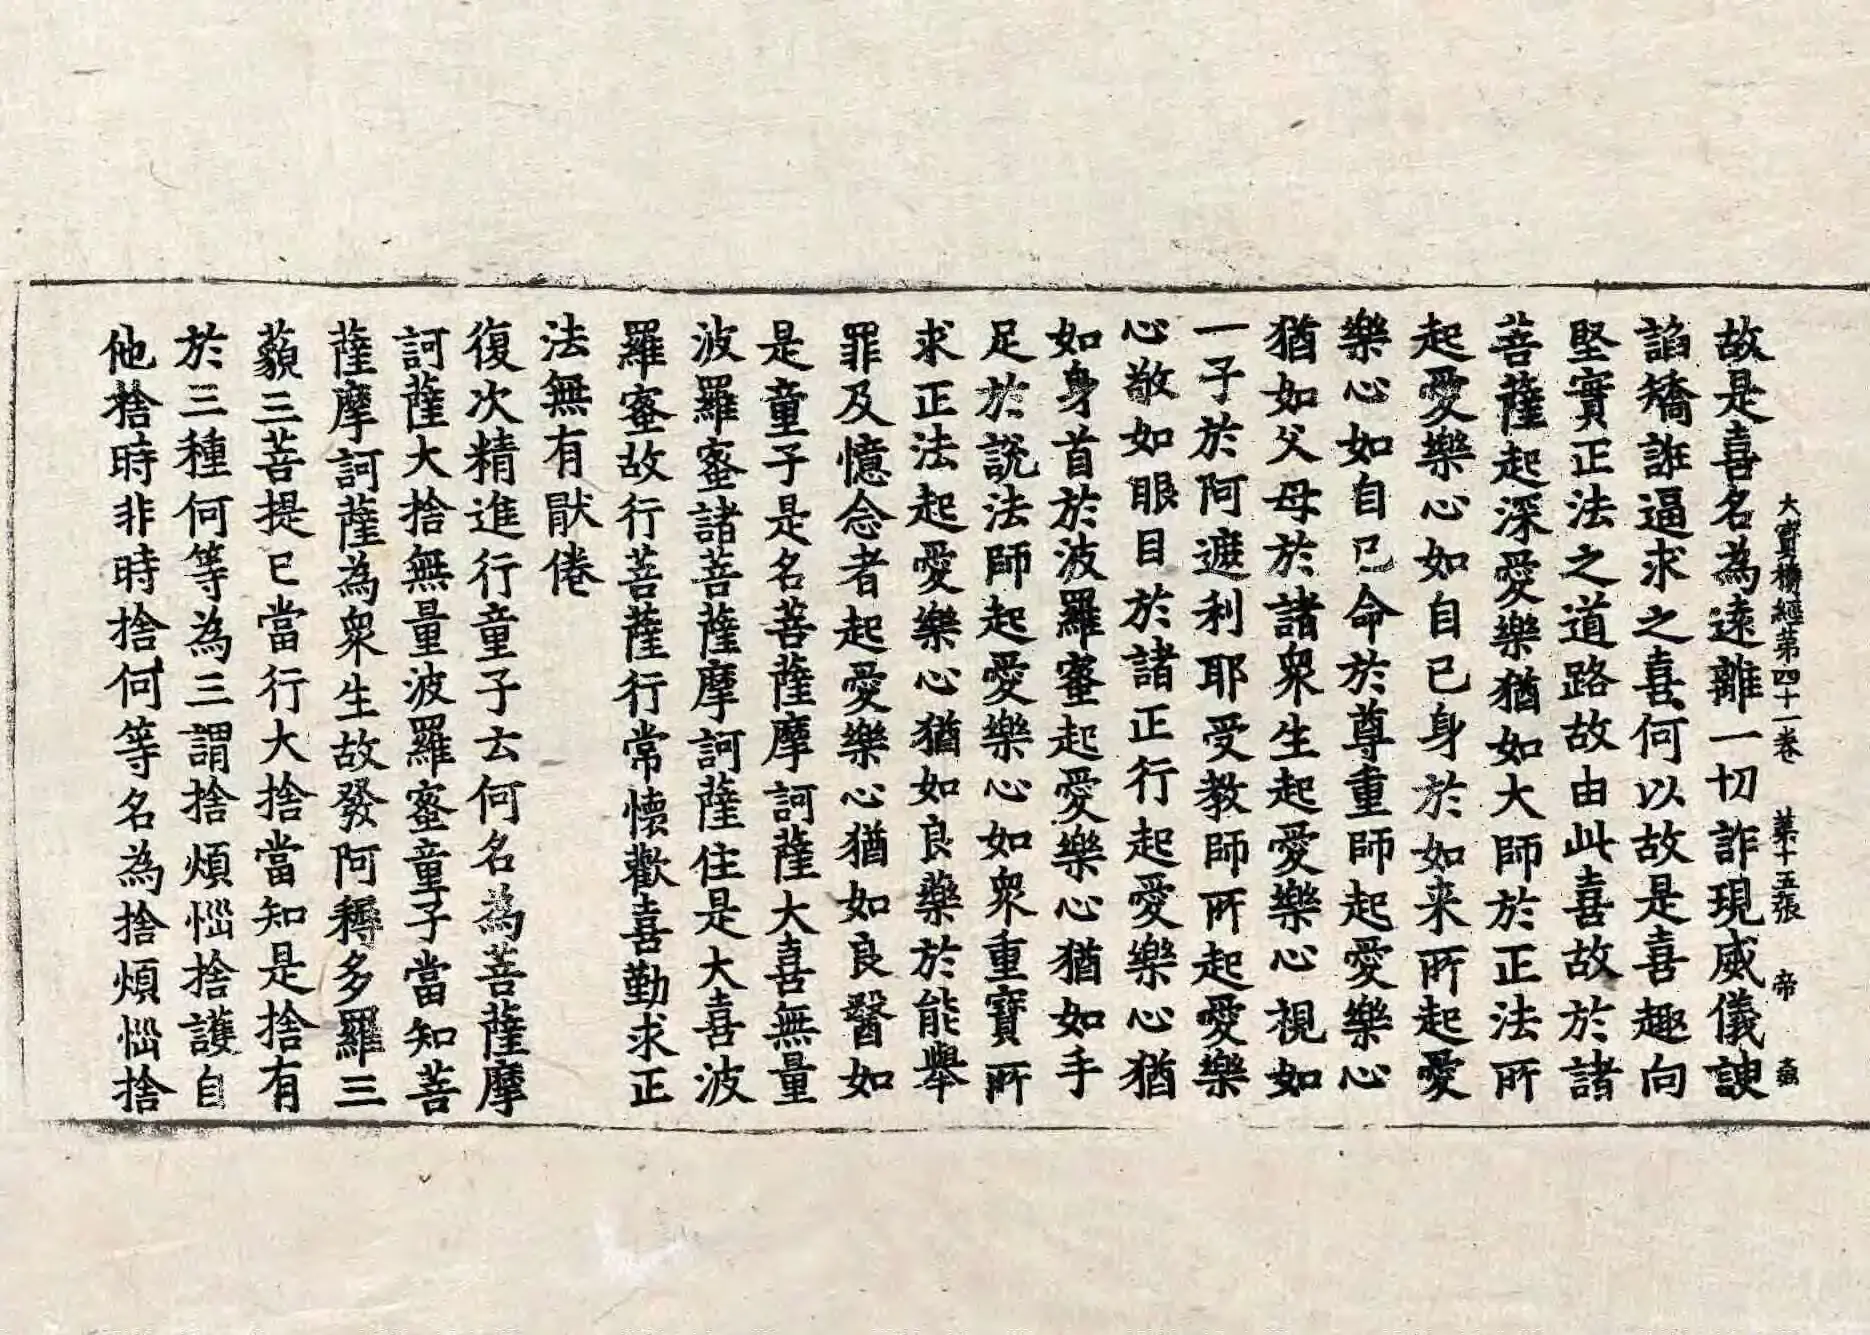 大寶積經第四十一卷 第十五張 帝
故是喜名為遠離一切詐現威儀諛
諂矯誑逼求之喜何以故是喜趣向
堅實正法之道路故由此喜故於諸
菩薩起深愛樂猶如大師於正法所
起愛樂心如自己身於如来所起愛
樂心如自己命於尊重師起愛樂心
猶如父母於諸衆生起愛樂心視如
一子於阿遮利耶受教師所起愛樂
心敬如眼目於諸正行起愛樂心猶
如身首於波羅蜜起愛樂心猶如手
足於說法師起愛樂心如衆重寶所
求正法起愛樂心猶如良藥於能舉
罪及憶念者起愛樂心猶如良醫如
是童子是名菩薩摩訶薩大喜無量
波羅蜜諸菩薩摩訶薩住是大喜波
羅蜜故行菩薩行常懷歡喜勤求正
法無有猒倦
復次精進行童子云何名為菩薩摩
訶薩大捨無量波羅蜜童子當知菩
薩摩訶薩為衆生故發阿耨多羅三
藐三菩提已當行大捨當知是捨有
於三種何等為三謂捨煩惱捨護自
他捨時非時捨何等名為捨煩惱捨